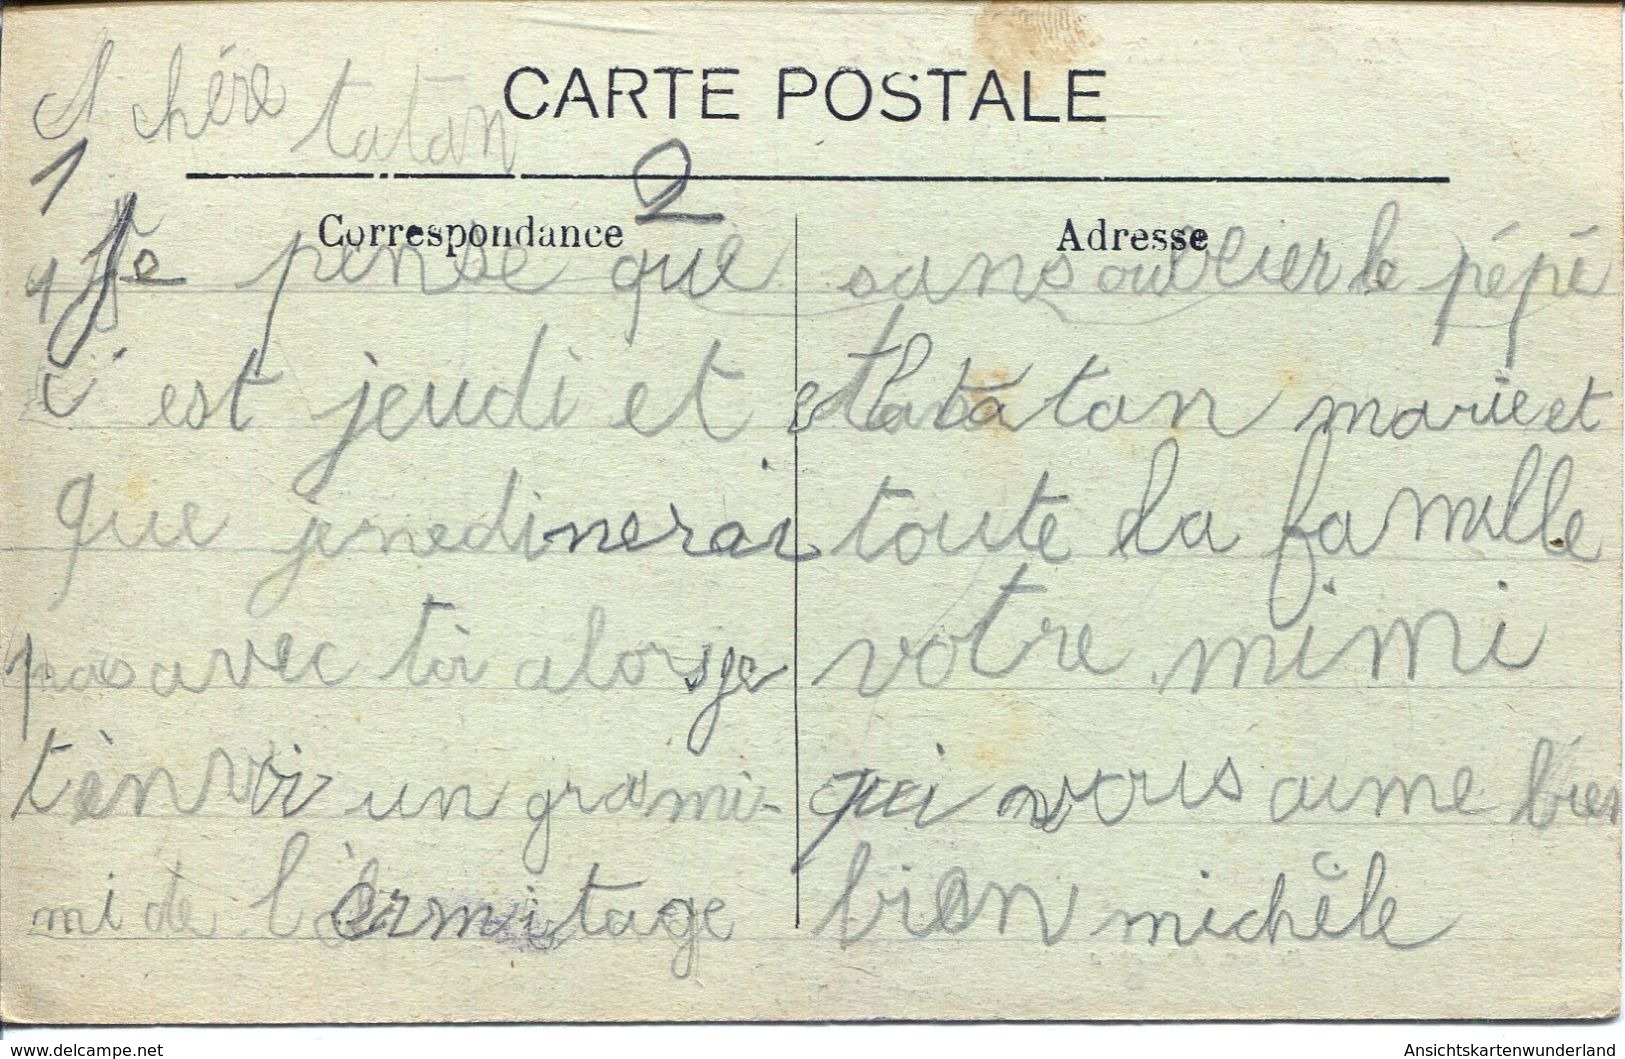 CARTE POSTALE
A chére tatan
1
2
Correspondance
Je pense que
c'est jeudi et
que jenedinerai
pas avec toi alorsje
t'envoi un gros mi-
mi de l'ermitage
Adresse
sans oublier le pépé
et la tatan marie et
toute la famille
votre mimi
qui vous aime bien
bien michèle
www.delcampe.net
Ansichtskartenwunderland